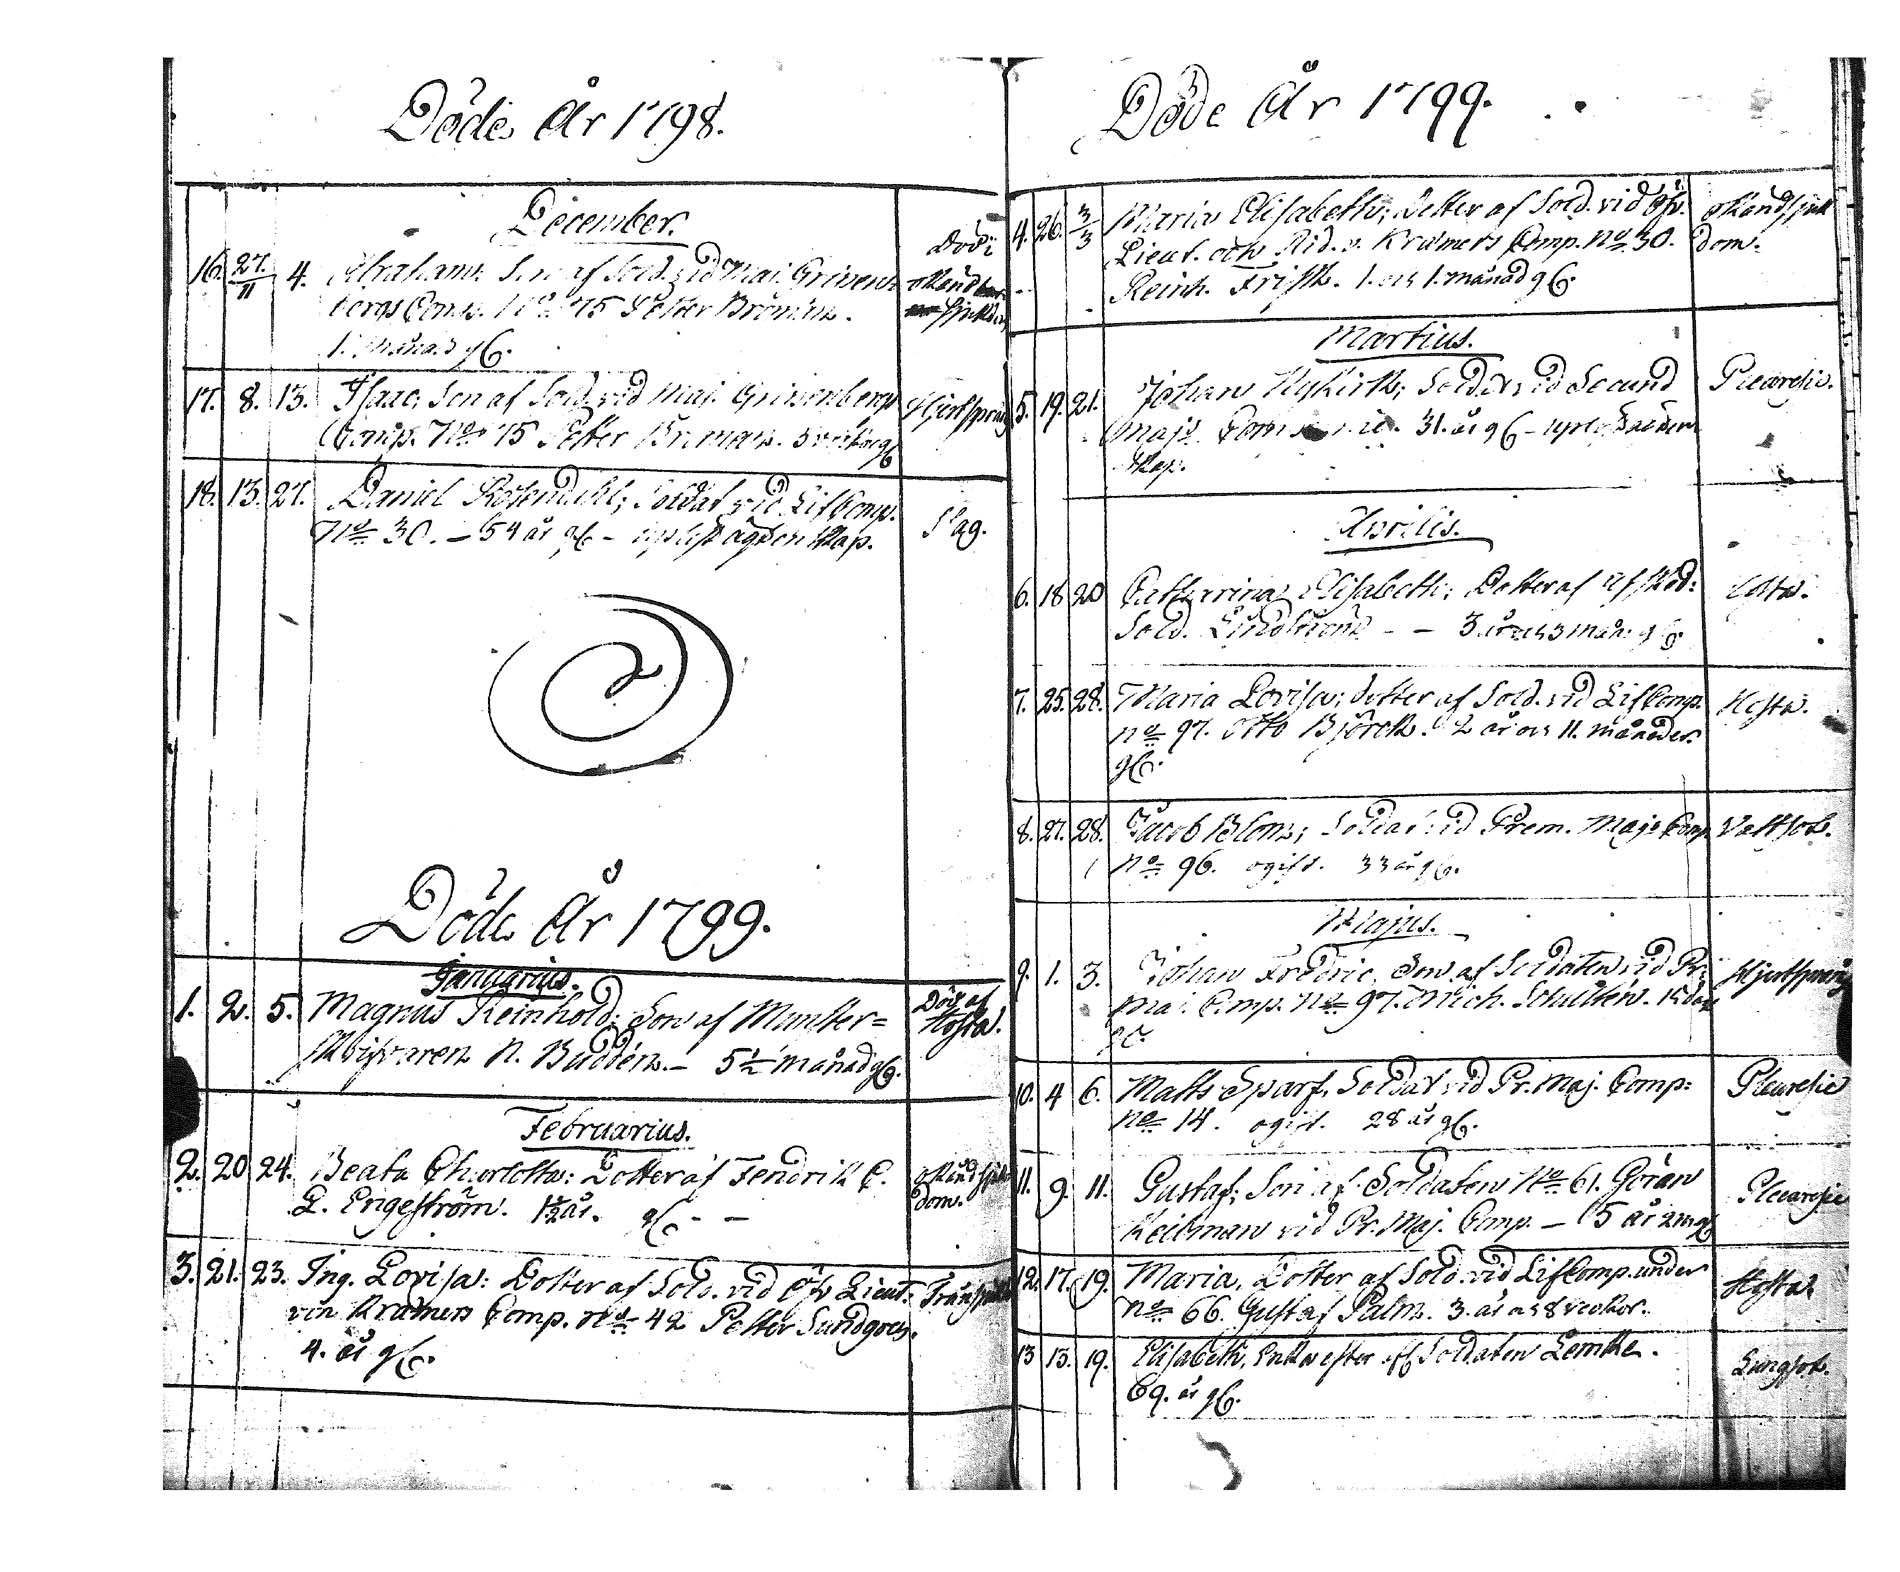 Döde År 1798.
December.
16. 27/11 4. Abraham: Son af Sold. vid Maj. Grivenbergs Comp. No 75 Petter Broman.
1. månad gl.
Död i okänd sjukdom
17. 8. 13. Isaac, Son af Sold. vid Maj. Grivenbergs
Comp. No 75 Petter Broman. 5 veckor gl.
Hjertsprång
18. 13. 27. Daniel Rosendahl; Soldat vid LifComp.
No 30. – 54 år gl – uplöst ägtenskap.
Slag.
Döde År 1799.
Januarius.
1. 2. 5. Magnus Reinhold: Son af Munster=
skrifvaren N. Buddén. – 5 1/2 månad gl.
Dög af Hosta.
Februarius.
2. 20 24. Beata Charlotta: Dotter af Fendrik C.
G. Engeström. 1 1/2 år. gl. – –
okänd sjukdom.
3. 21. 23. Ing. Lovisa: Dotter af Sold. vid Öfv. Lieut:
von Kræmers Comp. No 42 Petter Sundgren.
4. år gl.
Döde År 1799.
4. 26. 3/3 Maria Elisabeth; dotter af Sold. vid Öfv.
Lieut. och Rid. v. Kræmers Comp. No 30.
Reinh. Frisk. 1. och 1. månad gl.
okänd sjukdom.
Martius.
5. 19. 21. Johan; Soldat vid Secund
Maj. Comp. 31. år gl – uplöst ägtenskap.
Pleuresie.
Aprilis.
6. 18 20 Catharina Elisabeth; Dotter af afsked:
Sold. Lindström – – 3 år och 3 mån: gl.
Hosta.
7. 25. 28. Maria Lovisa; dotter af Sold. vid LifComp.
No 97. Otto Björck. 2 år och 11. månader.
gl.
Hosta.
8. 27. 28. Jacob Blom; Soldat vid Prem. Majs Comp.
No 96. ogift. 33 år gl.
Vattsot.
Majus.
9. 1. 3. Johan Fredric, Son af Soldaten vid Pr:
Maj. Comp. No 97. Mich. Schultén.
gl.
Hjertsprång
10. 4 6. Matts Sparf, Soldat vid Pr. Maj. Comp:
No 14. ogift. 28 år gl.
Pleuresie
11. 9. 11. Gustaf; Son af Soldaten No 61. Göran
Keilman vid Pr. Maj. Comp. – 5 år
Pleuresie
12. 17. 19. Maria, Dotter af Sold. vid LifComp. under
No 66. Gustaf Palm. 3. år och 8 veckor.
Hosta
13 13. 19. Elisabeth, Enka efter Soldaten Lemke.
69. år gl.
Lungsot.